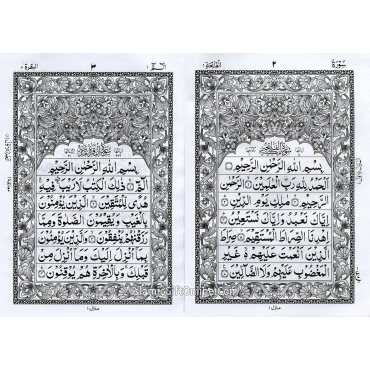 سُوْرَةُ ٢ الفاتحة ١
بِسْمِ اللهِ الرَّحْمٰنِ الرَّحِيْمِ
اَلْحَمْدُ لِلّٰهِ رَبِّ الْعٰلَمِيْنَ الرَّحْمٰنِ
الرَّحِيْمِ مٰلِكِ يَوْمِ الدِّيْنِ
اِيَّاكَ نَعْبُدُ وَاِيَّاكَ نَسْتَعِيْنُ
اِهْدِنَا الصِّرَاطَ الْمُسْتَقِيْمَ صِرَاطَ
الَّذِيْنَ اَنْعَمْتَ عَلَيْهِمْ غَيْرِ
الْمَغْضُوْبِ عَلَيْهِمْ وَلَا الضَّآلِّيْنَ
منزل ١
الٓمّٓ ١ ٣ البقرة ٢
بِسْمِ اللهِ الرَّحْمٰنِ الرَّحِيْمِ
الٓمّٓ ذٰلِكَ الْكِتٰبُ لَا رَيْبَ فِيْهِ
هُدًى لِّلْمُتَّقِيْنَ الَّذِيْنَ يُؤْمِنُوْنَ
بِالْغَيْبِ وَيُقِيْمُوْنَ الصَّلٰوةَ وَمِمَّا
رَزَقْنٰهُمْ يُنْفِقُوْنَ وَالَّذِيْنَ يُؤْمِنُوْنَ
بِمَآ اُنْزِلَ اِلَيْكَ وَمَآ اُنْزِلَ مِنْ
قَبْلِكَ وَبِالْاٰخِرَةِ هُمْ يُوْقِنُوْنَ
منزل ١